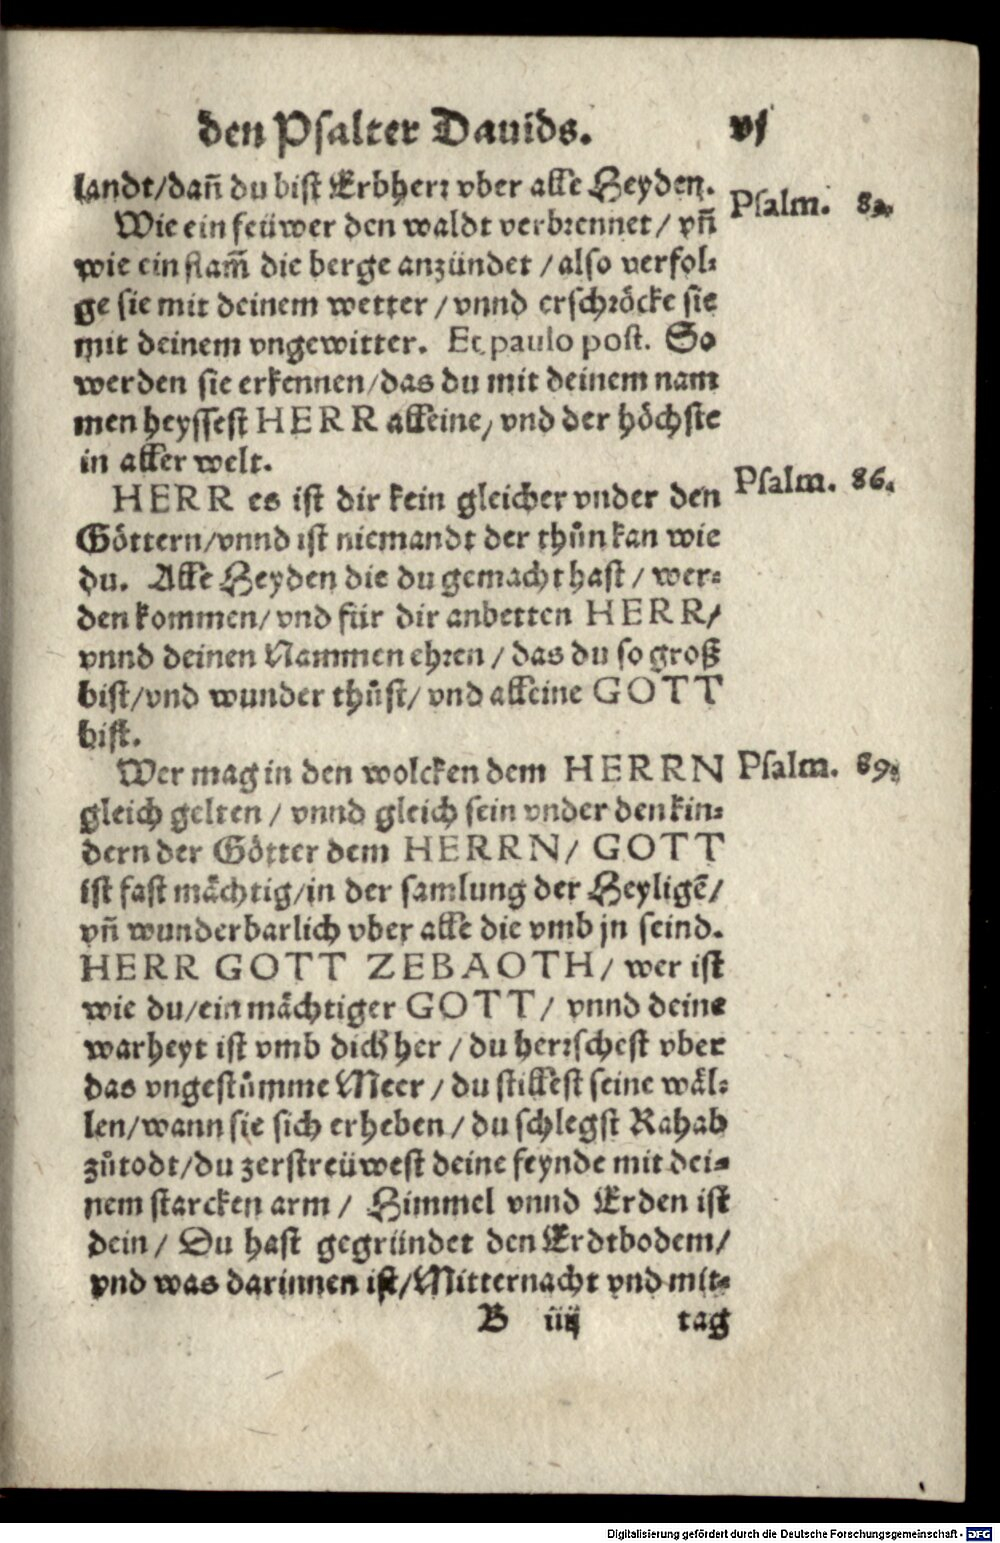 den Psalter Dauids. vj
landt/dañ du bist Erbherꝛ vber alle Heyden.
Psalm. 82.
Wie ein feüwer den waldt verbꝛennet/ vñ
wie ein flam̃ die berge anzündet /also verfol⸗
ge sie mit deinem wetter /vnnd erschꝛöcke sie
mit deinem vngewitter. Et paulo post. So
werden sie erkennen/das du mit deinem nam
men heyssest HERR alleine/ vnd der höchste
in aller welt.
HERR es ist dir kein gleicher vnder den
Psalm. 86.
Göttern/vnnd ist niemandt der thůn kan wie
du. Alle Heyden die du gemacht hast / wer⸗
den kommen/ vnd für dir anbetten HERR/
vnnd deinen Nammen ehꝛen / das du so groß
bist/vnd wunder thůst/ vnd alleine GOTT
bist.
Wer mag in den wolcken dem HERRN
Psalm. 89.
gleich gelten / vnnd gleich sein vnder den kin⸗
dern der Götter dem HERRN/ GOTT
ist fast mächtig/in der samlung der Heyligẽ/
vñ wunderbarlich vber alle die vmb jn seind.
HERR GOTT ZEBAOTH/ wer ist
wie du/ein mächtiger GOTT/ vnnd deine
warheyt ist vmb dich her / du herꝛschest vber
das vngestümme Meer / du stillest seine wäl⸗
len/wann sie sich erheben / du schlegst Rahab
zůtodt/du zerstreüwest deine feynde mit dei⸗
nem starcken arm / Himmel vnnd Erden ist
dein / Du hast gegründet den Erdtbodem/
vnd was darinnen ist/Mitternacht vnd mit⸗
B iiij tag
Digitalisierung gefördert durch die Deutsche Forschungsgemeinschaft - DFG